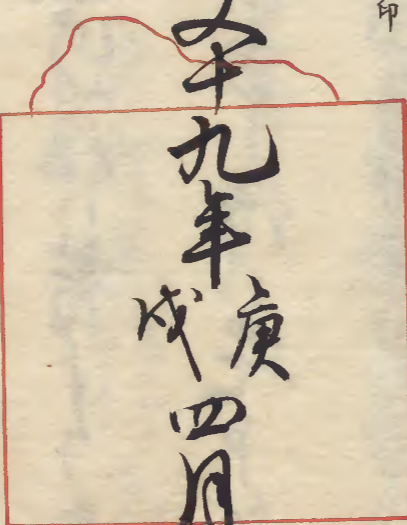 印
文十九年庚戌四月